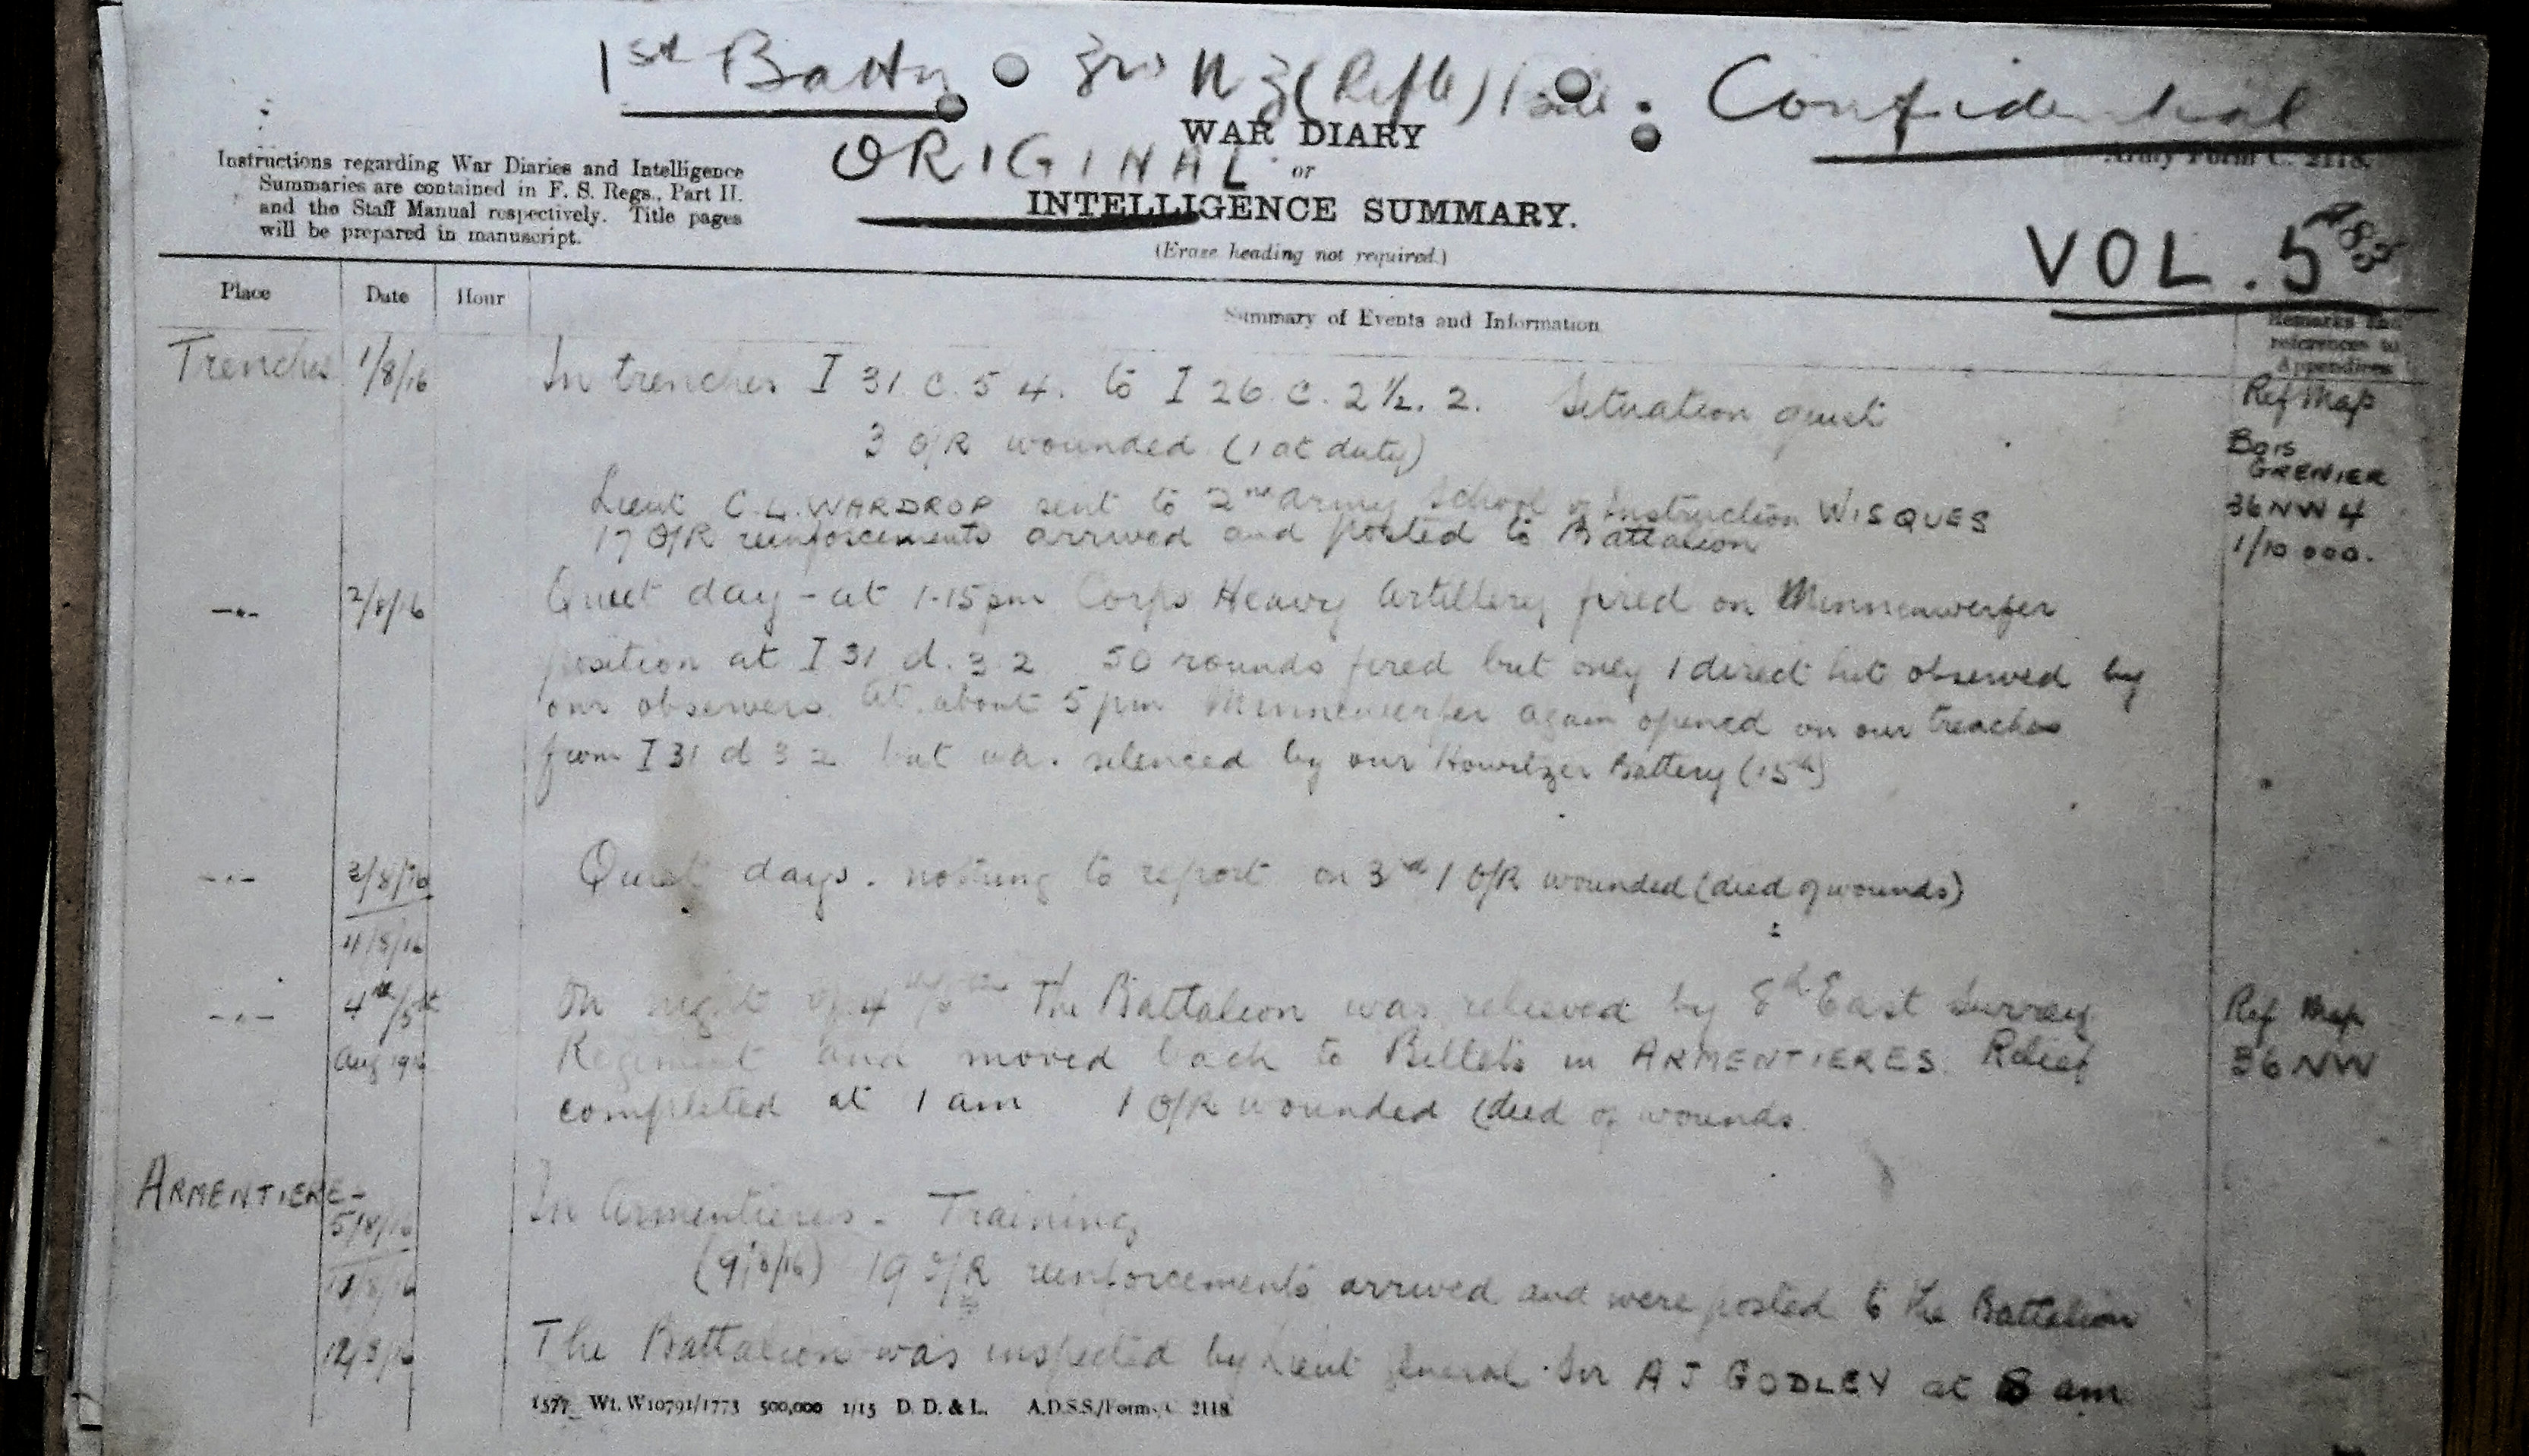 1st Battn 3rd N Z (Rifle) Bde. Confidential
WAR DIARY
ORIGINAL
or
Army Form C. 2118.
INTELLIGENCE SUMMARY.
(Erase heading not required.)
Instructions regarding War Diaries and Intelligence
Summaries are contained in F. S. Regs., Part II.
and the Staff Manual respectively. Title pages
will be prepared in manuscript.
VOL. 5
Place Date Hour Summary of Events and Information
Remarks and
references to
Appendices
Trenches 1/8/16 In trenches I 31. C. 5 4. to I 26. C. 2½. 2. Situation quiet
Ref Map
3 O/R wounded (1 at duty)
Bois
GRENIER
Lieut C.L. WARDROP sent to 2nd Army School of Instruction WISQUES
36 NW 4
17 O/R reinforcements arrived and posted to Battalion
1/10 000.
-"- 2/8/16 Quiet day - at 1-15 pm Corps Heavy Artillery fired on Minnenwerfer
position at I 31 d. 3 2 50 rounds fired but only 1 direct hit observed by
our observers. At about 5 pm Minnenwerfer again opened on our trenches
from I 31 d 3 2 but was silenced by our Howitzer Battery (15th)
-"- 3/8/16 Quiet days. nothing to report on 3rd 1 O/R wounded (died of wounds)
4/8/16
-"- 4th/5th On night of 4th/5th The Battalion was relieved by 8th East Surrey
Ref Map
Aug 1916 Regiment and moved back to Billets in ARMENTIERES. Relief
36 NW
completed at 1 am 1 O/R wounded (died of wounds.
ARMENTIERE-
5/8/16 In Armentieres - Training
11/8/16 (9/8/16) 19 O/R reinforcements arrived and were posted to the Battalion
12/8/16 The Battalion was inspected by Lieut General Sir A J GODLEY at 8 am
1577 Wt. W10791/1773 500,000 1/15 D. D. & L. A.D.S.S./Form/C. 2118.